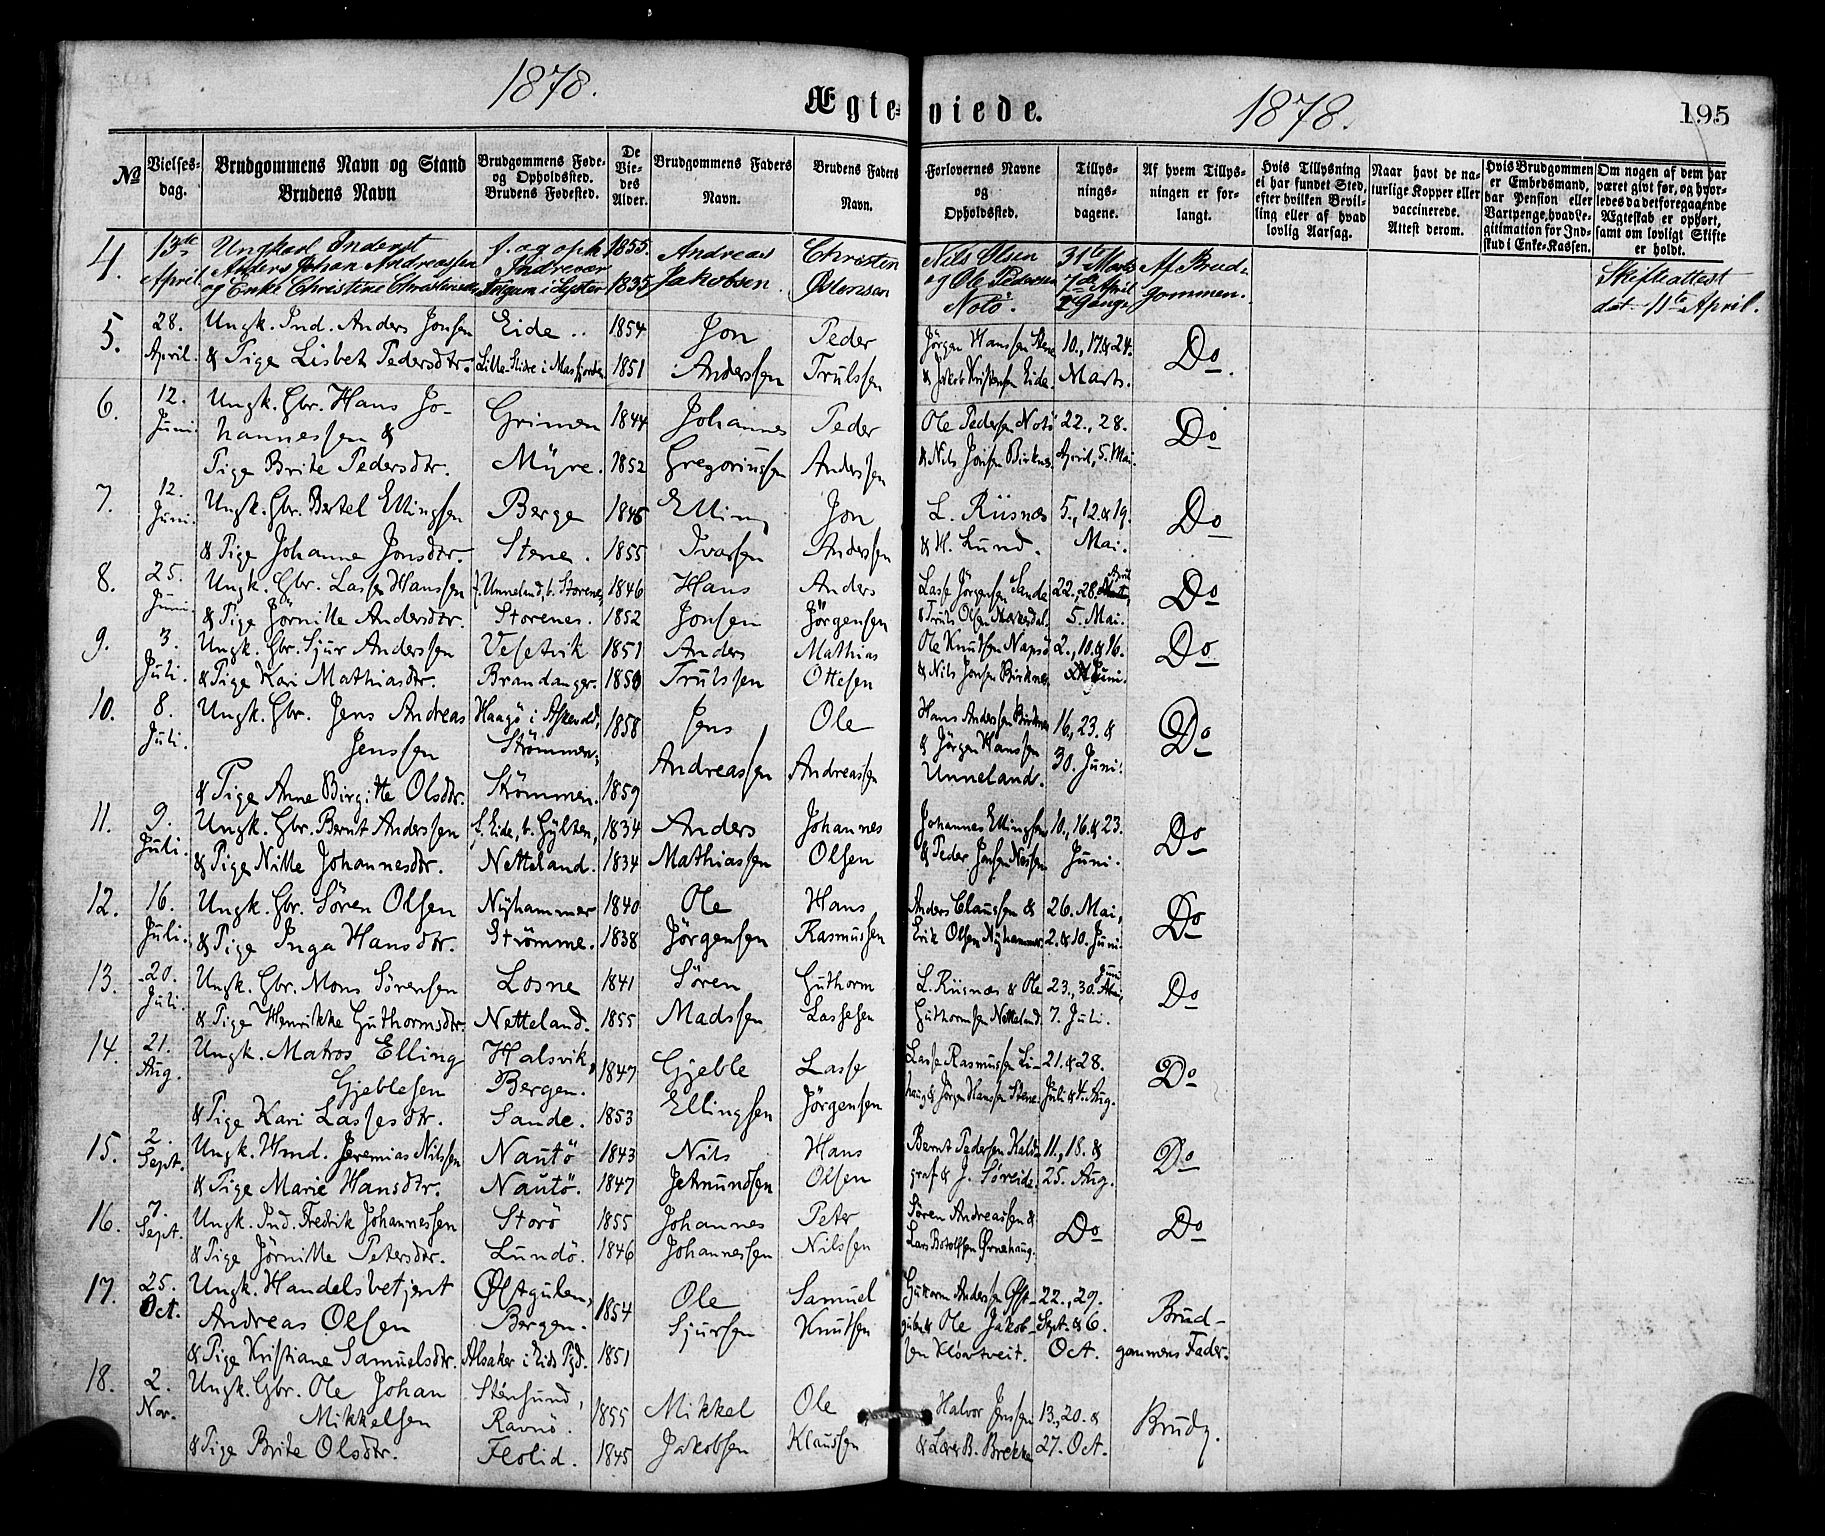 1878. Ægteviede. 1878. 195
№ | Vielsesdag. | Brudgommens Navn og Stand Brudens Navn | Brudgommens Føde- og Opholdssted. Brudens Fødested. | De Viedes Alder. | Brudgommens Faders Navn. | Brudens Faders Navn. | Forlovernes Navne og Opholdssted. | Tillysningsdagene. | Af hvem Tillysningen er forlangt. | Hvis Tillysning ei har fundet Sted, efter hvilken Bevilling eller af hvad lovlig Aarsag. | Naar havt de naturlige Kopper eller vaccinerede. Attest derom. | Hvis Brudgommen er Embedsmand, har Pension eller Vartpenge, hvad Legitimation for Indskud i Enke-Kassen. | Om nogen af dem har været givt før, og hvorledes da det foregaaende Ægteskab er ophørt, samt om lovligt Skifte er holdt.
4. 13de April. Ungkarl Inderst Anders Johan Andreassen og Enke Christine f. og oph. Indrevær 1855. 1835 Andreas Jakobsen. Christen Nils Olsen og Ole Pedersen Notö. 31te Marts 7de April Af Brudgommen. Skifteattest dat. 11te April.
5. 28. April. Ungk. Ind. Anders Jonsen Eide 1854 Jon Peder Jörgen Hanssen Stene 10., 17. & 24.
& Pige Lisbet Pedersdtr. i Masfjorden 1851 Anderssen Trulssen & Jakob Kristensen Eide. Marts. Do
6. 12. Juni Ungk. Gbr. Hans Jo- Grimen 1844 Johannes Peder Ole Pedersen Notö 22., 28.
hannessen &
Pige Brite Pedersdtr. Myre. 1852 Gregoriussen Anderssen & Nils Jonsen Birknes. April, 5. Mai. Do
7. 12. Juni. Ungk. Gbr. Bertel Ellingsen Berge 1845 Elling Jon L. Riisnæs 5., 12. & 19.
& Pige Johanne Jonsdtr. Stene. 1855 Ivarsen Anderssen & H. Lund. Mai. Do
8. 25. Juni Ungk. Gbr. Lasse Hanssen f. Unneland, b. Storenes, 1846 Hans Anders Lasse Jörgensen Sande 22., 28. April
& Pige Jörnitte Andersdtr. Storenes. 1852 Jonsen Jörgensen & Truls Olsen 5. Mai. Do
9. 3. Juli. Ungk. Gbr. Sjur Anderssen Vesetvik 1851 Anders Mathias Ole Knutsen 2., 10. & 16.
& Pige Kari Mathiasdtr. Brandanger. 1850 Trulssen Ottesen & Nils Jonsen Birknes. Juni. Do
10. 8. Juli. Ungk. Gbr. Jens Andreas Haagö i Askevold, 1858 Jens Ole Hans Anderssen Birknes 16., 23. &
Jenssen Strömmen, Andreassen Andreassen & Jörgen Hanssen 30. Juni. Do
& Pige Anne Birgitte Olsdtr. Strömmen. 1859 Unneland.
11. 9. Juli. Ungk. Gbr. Bernt Anderssen f. Eide, b. Gylten, 1834 Anders Johannes Johannes Ellingsen 10., 16. & 23.
& Pige Nille Johannesdtr. Netteland. 1834 Mathiassen Olsen & Peder Jonsen Juni. Do
12. 16. Juli. Ungk. Gbr. Sören Olsen Nyhammer 1840 Ole Hans Anders Claussen & 26. Mai,
& Pige Inga Hansdtr. Strömme. 1838 Jörgensen Rasmussen Erik Olsen Nyhammer. 2. & 10. Juni. Do
13. 20. Juli. Ungk. Gbr. Mons Sörensen Losne 1841 Sören Guthorm L. Riisnæs & Ole 23., 30. Juni
& Pige Henrikke Guthormsdtr. Netteland. 1855 Madssen Lassesen Guthormsen Netteland. 7. Juli. Do
14. 21. Aug. Ungk. Matros Elling Halsvik, 1847 Gjeble Lasse Lasse Rasmussen Li- 21. & 28.
Gjeblesen Bergen. Ellingsen Jörgensen haug & Jörgen Hanssen Stene. Juli & 4. Aug. Do
& Pige Kari Lassesdtr. Sande. 1853
15. 2. Sept. Ungk. Hmd. Jeremias Nilssen Nautö 1843 Nils Hans Bernt Pedersen Kald- 11., 18. &
& Pige Marie Hansdtr. Nautö. 1847 Jetmundsen Olsen graf & J. Söreide. 25. Aug. Do
16. 7. Sept. Ungk. Ind. Fredrik Johannessen Storö 1855 Johannes Peter Sören Andreassen &
& Pige Jörnitte Petersdtr. Lundö. 1846 Johannessen Nilssen Lars Botolfsen Ørnehaug. Do Do
17. 25. Oct. Ungk. Handelsbetjent Østgulen, 1854 Ole Samuel Guttorm Anderssen Øst- 22., 29.
Andreas Olsen Bergen. Sjursen Knutsen gulen & Ole Jakob- Sept. & 6. Brud-
& Pige Kristiane Samuelsdtr. Alsaker i Eids Pgd. 1851 sen Hovtveit. Oct. gommens Fader.
18. 2. Nov. Ungk. Gbr. Ole Johan Stensund, 1855 Mikkel Ole Halvor Jenssen 13., 20. &
Mikkelsen Ravnö. Brudg.
& Pige Brite Olsdtr. Flolid. 1845 Jakobsen Klaussen & Lars B. Brekke 27. Oct.